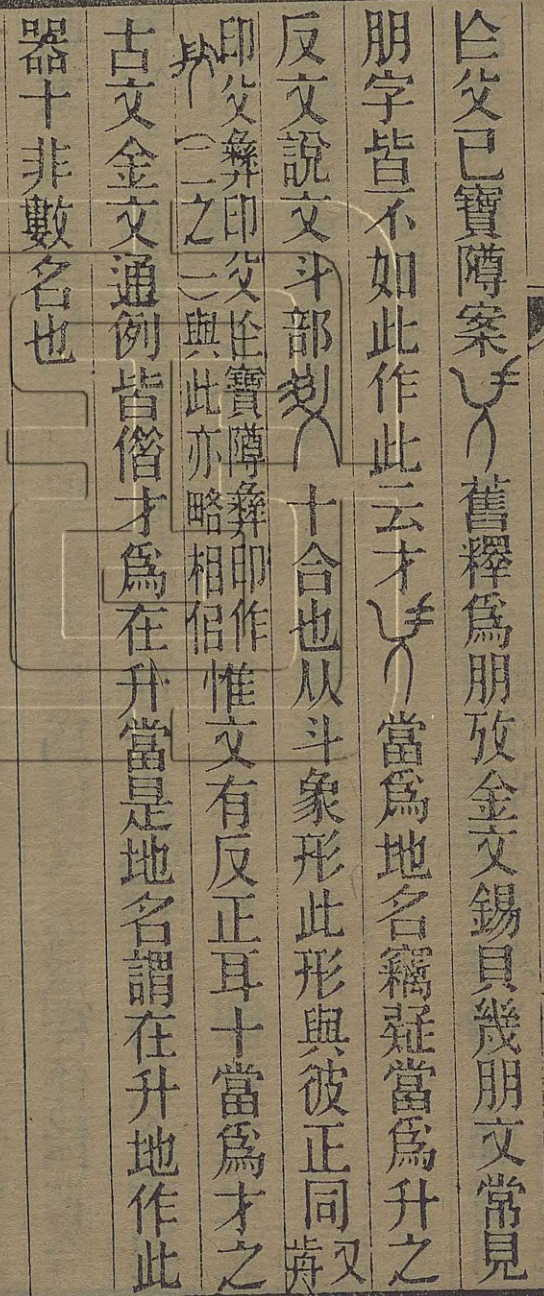 父已寶尊案舊釋爲朋攷金文錫貝幾朋文常見
朋字皆不如此作此云才當爲地名竊疑當爲升之
反文說文斗部十合也从斗象形此形與彼正同又
印父彝印父寶尊彝印作
(二之一)與此亦略相侣
惟文有反正耳十當爲才之
古文金文通例皆偺才爲在升當是地名謂在升地作此
器十非數名也